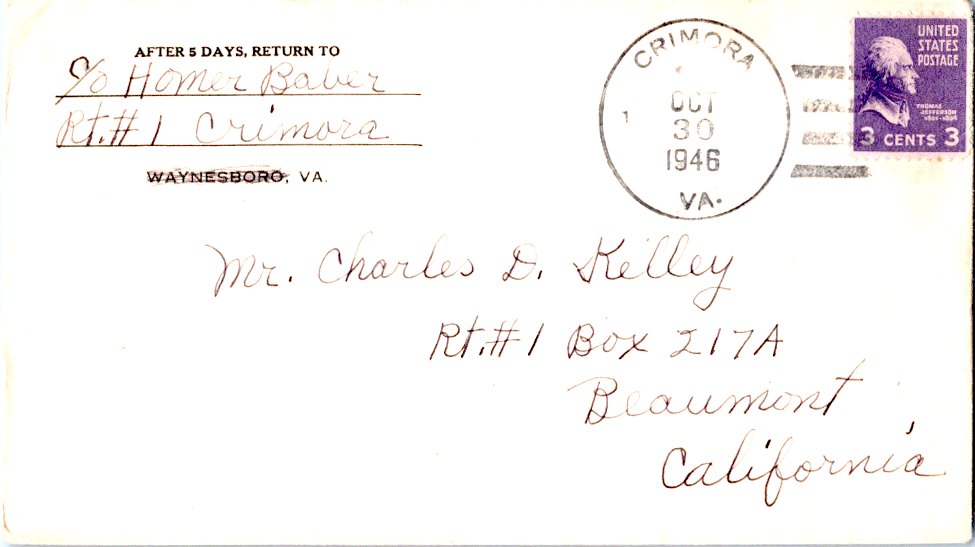 AFTER 5 DAYS, RETURN TO
c/o Homer Baber
Rt.#1 Crimora
WAYNESBORO, VA.
CRIMORA
1
OCT
30
1946
VA.
UNITED
STATES
POSTAGE
THOMAS
JEFFERSON
1801-1809
3 CENTS 3
Mr. Charles D. Kelley
Rt.#1 Box 217A
Beaumont,
California